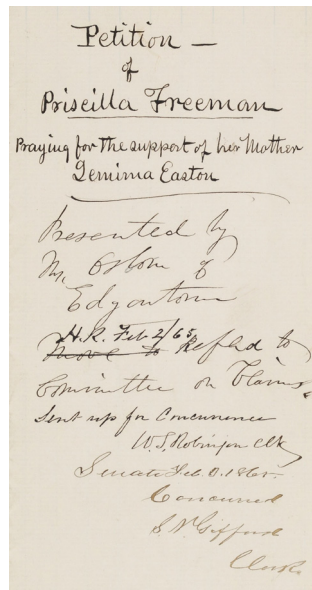 Petition —
of
Priscilla Freeman
Praying for the support of her Mother
Jemima Easton
Presented by
Mr. Osborn of
Edgartown
H.R. Feb 2/65,
Move to Refd to
Committee on Claims.
Sent up for Concurrence
W. S. Robinson Clk
Senate Feb. 1865.
Concurred
S. N. Gifford
Clerk